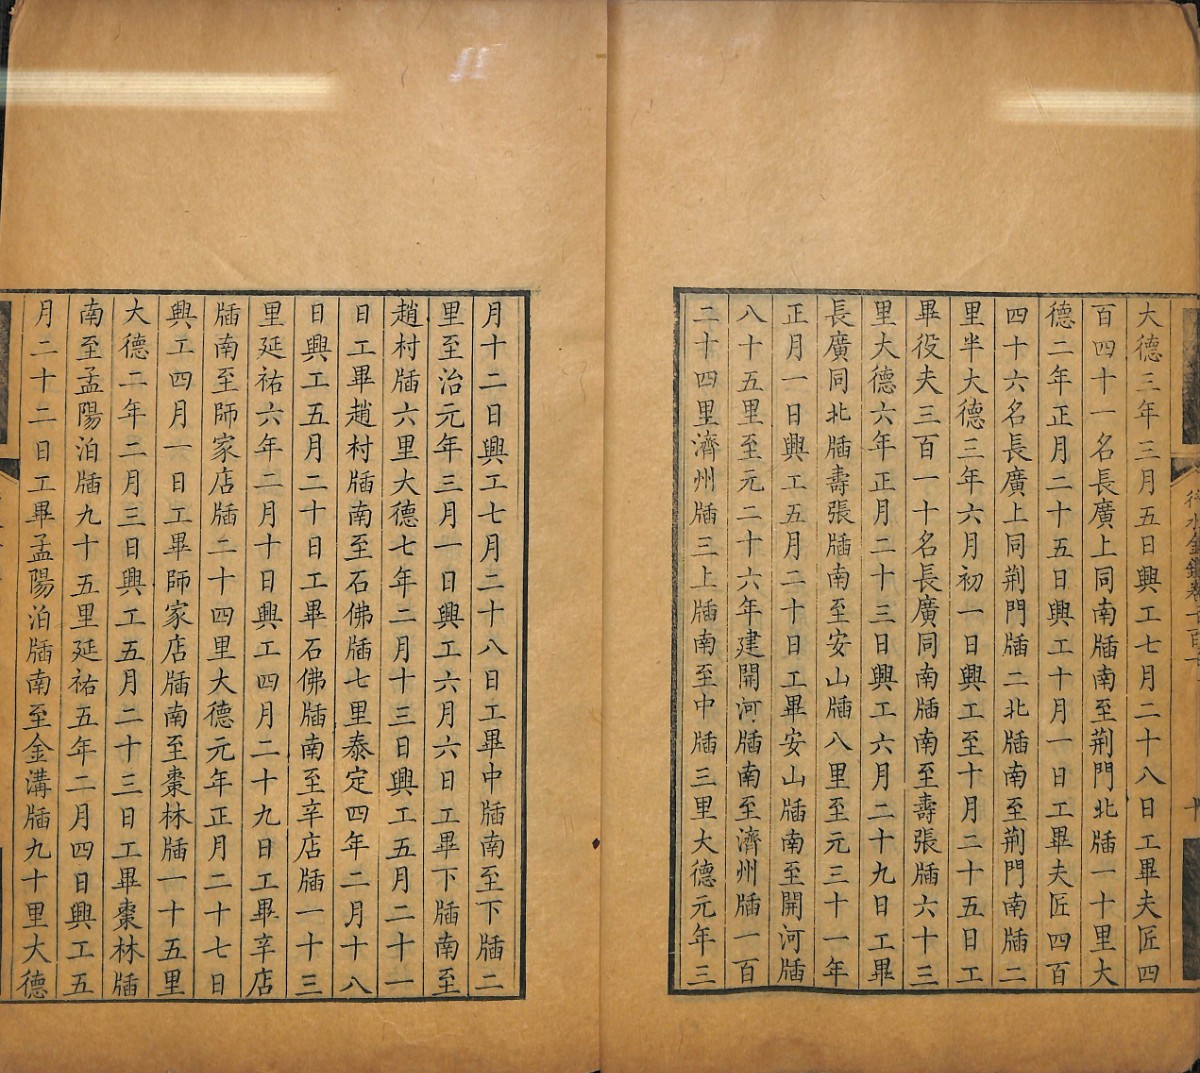 行水金鑑卷一百
大德三年三月五日興工七月二十八日工畢夫匠四
百四十一名長廣上同南牐南至荆門北牐一十里大
德二年正月二十五日興工十月一日工畢夫匠四百
四十六名長廣上同荆門牐二北牐南至荆門南牐二
里半大德三年六月初一日興工至十月二十五日工
畢役夫三百一十名長廣同南牐南至壽張牐六十三
里大德六年正月二十三日興工六月二十九日工畢
長廣同北牐壽張牐南至安山牐八里至元三十一年
正月一日興工五月二十日工畢安山牐南至開河牐
八十五里至元二十六年建開河牐南至濟州牐一百
二十四里濟州牐三上牐南至中牐三里大德元年三
月十二日興工七月二十八日工畢中牐南至下牐二
里至治元年三月一日興工六月六日工畢下牐南至
趙村牐六里大德七年二月十三日興工五月二十一
日工畢趙村牐南至石佛牐七里泰定四年二月十八
日興工五月二十日工畢石佛牐南至辛店牐一十三
里延祐六年二月十日興工四月二十九日工畢辛店
牐南至師家店牐二十四里大德元年正月二十七日
興工四月一日工畢師家店牐南至棗林牐一十五里
大德二年二月三日興工五月二十三日工畢棗林牐
南至孟陽泊牐九十五里延祐五年二月四日興工五
月二十二日工畢孟陽泊牐南至金溝牐九十里大德